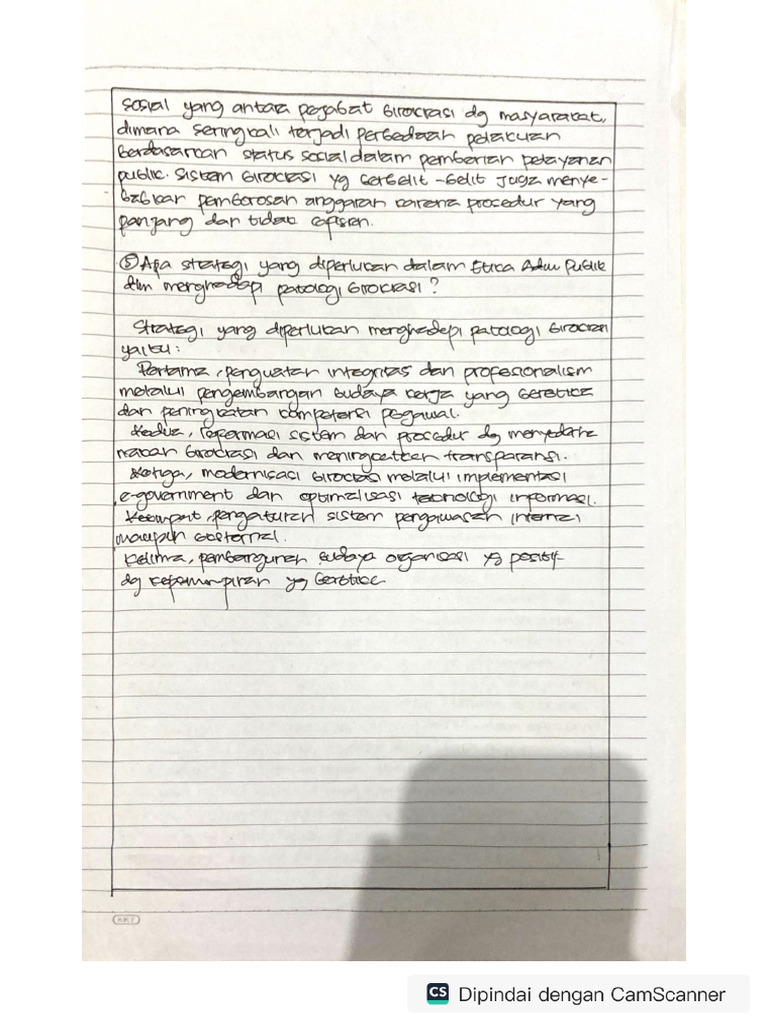 sosial yang antara pejabat birokrasi dg masyarakat,
dimana seringkali terjadi perbedaan pelakuan
berdasarkan status sosial dalam pemberian pelayanan
public. Sistem birokrasi yg berbelit-belit juga menye-
babkan pemborosan anggaran karena procedur yang
panjang dan tidak efisien.
⑤ Apa strategi yang diperlukan dalam Etika Adm Publik
dlm menghadapi patologi birokrasi?
Strategi yang diperlukan menghadapi patologi birokrasi
yaitu:
Pertama, penguatan integritas dan profesionalism
melalui pengembangan budaya kerja yang beretika
dan peningkatan kompetensi pegawai.
Kedua, reformasi sistem dan procedur dg menyederha
nakan birokrasi dan meningkatkan transparansi.
Ketiga, modernisasi birokrasi melalui implementasi
e-government dan optimalisasi teknologi informasi.
Keempat, pengaturan sistem pengawasan internal
maupun eksternal.
Kelima, pembangunan budaya organisasi yg positif
dg kepemimpinan yg beretika
KKY
CS Dipindai dengan CamScanner